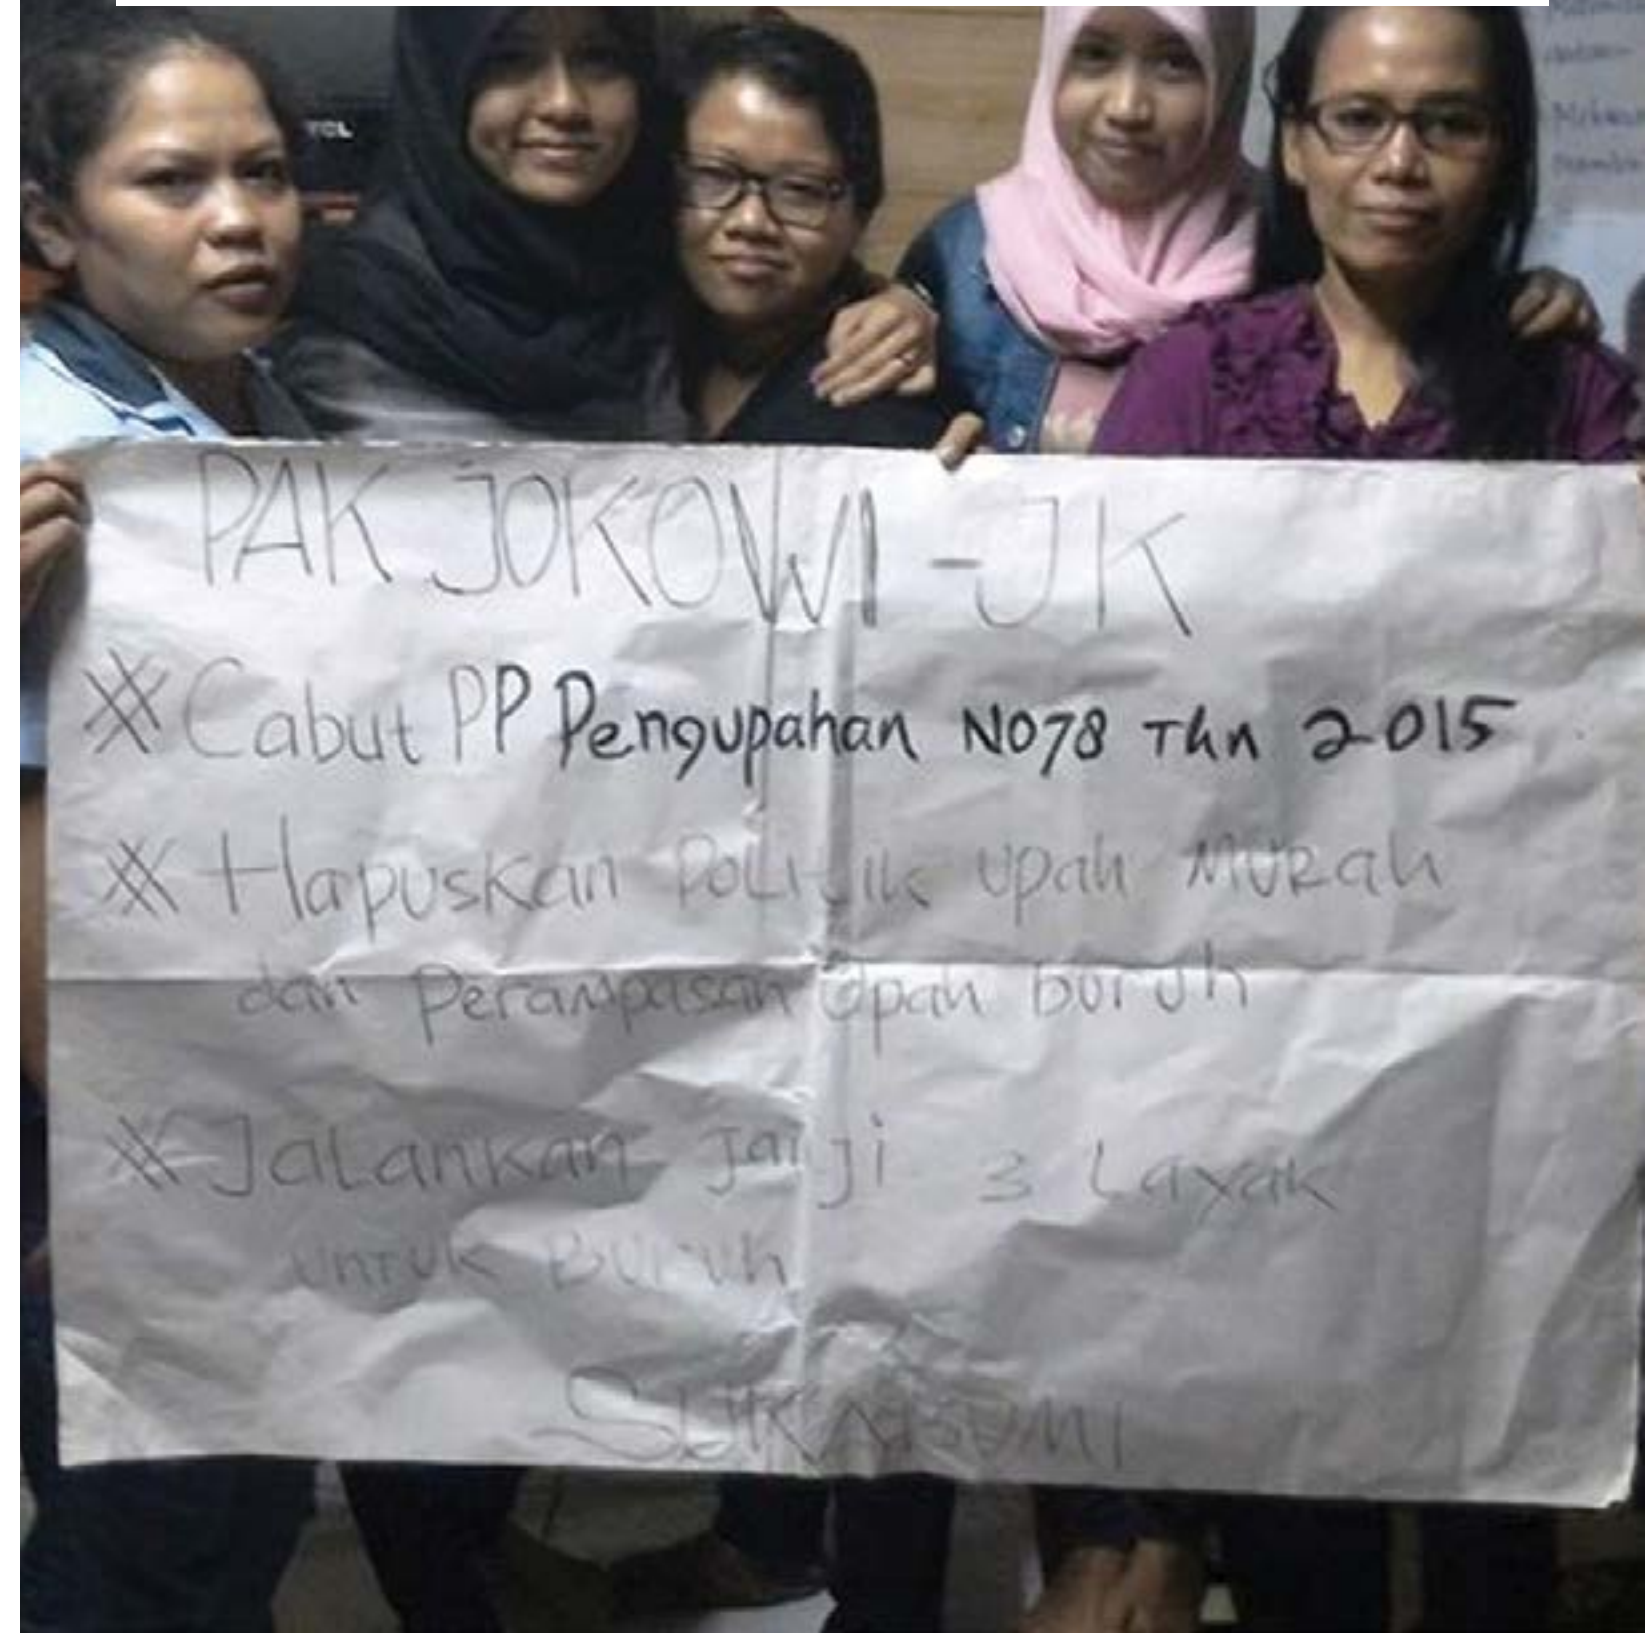 TCL
PAK JOKOWI - JK
# Cabut PP Pengupahan NO78 Thn 2015
# Hapuskan POLITik UPah MURah
dan Perampasan Upah buruh
# JaLankan Janji 3 Layak
untuk Buruh
SUKABUMI